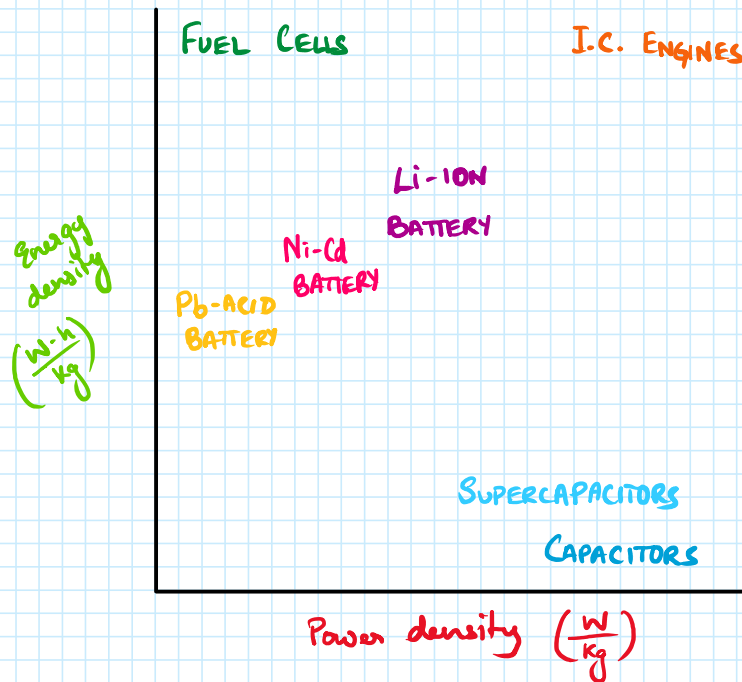 FUEL CELLS
I.C. ENGINES
Li-ION
BATTERY
Ni-Cd
BATTERY
Pb-ACID
BATTERY
Energy
density
(W-h/kg)
SUPERCAPACITORS
CAPACITORS
Power density (W/kg)